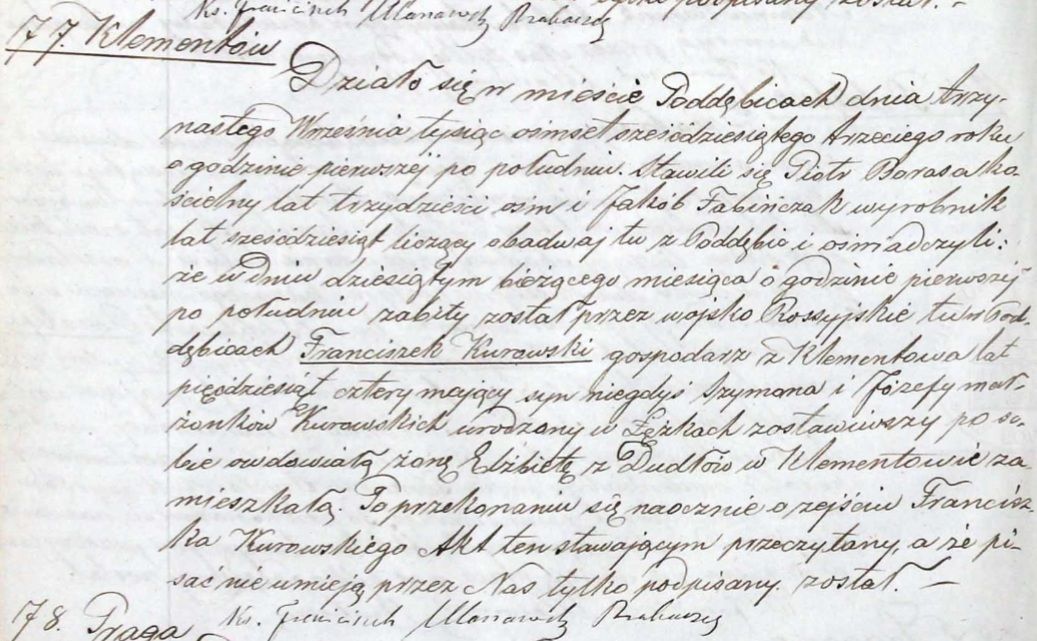 Ks. Franciszek Ulanowski Proboszcz podpisany został. –
77. Klementów
Działo się w mieście Poddębicach dnia trzy-
nastego Września tysiąc ośmset sześódziesiątego trzeciego roku
o godzinie pierwszéj po południu. Stawili się Piotr Barasa ko
ścielny lat trzydzieści ośm i Jakób Fabińczak wyrobnik
lat sześódziesiąt liczący obadwaj tu z Poddębic i oświadczyli:
że w dniu dziesiątym bieżącego miesiąca o godzinie pierwszéj
po południu zabity został przez wojsko Rossyjskie tu w Pod-
dębicach Franciszek Kurowski gospodarz z Klementowa lat
pięódziesiąt cztery mający syn niegdyś Szymona i Józefy mał-
żonków Kurowskich urodzony w Łężkach zostawiwszy po so-
bie owdowiałą żonę Elżbietę z Dudków w Klementowie za
mieszkałą. Po przekonaniu się naocznie o zejściu Francisz-
ka Kurowskiego Akt ten stawającym przeczytany, a że pi-
sać nie umieją przez Nas tylko podpisany został. –
Ks. Franciszek Ulanowski Proboszcz
78. Praga